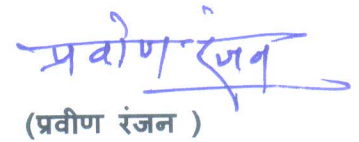 प्रवीण रंजन
(प्रवीण रंजन )